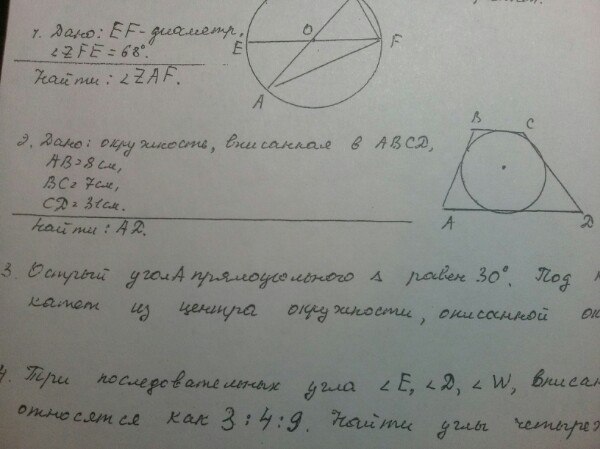 1. Дано: EF-диаметр,
∠ZFE = 68°.
Найти: ∠ZAF.
E
O
F
A
2. Дано: окружность, вписанная в ABCD,
AB=8см,
BC=7см,
CD=31см.
Найти: AD.
B
C
A
D
3. Острый угол A прямоугольного Δ равен 30°. Под
катет из центра окружности, описанной
4. Три последовательных угла ∠E, ∠D, ∠W,
относятся как 3:4:9. Найти углы